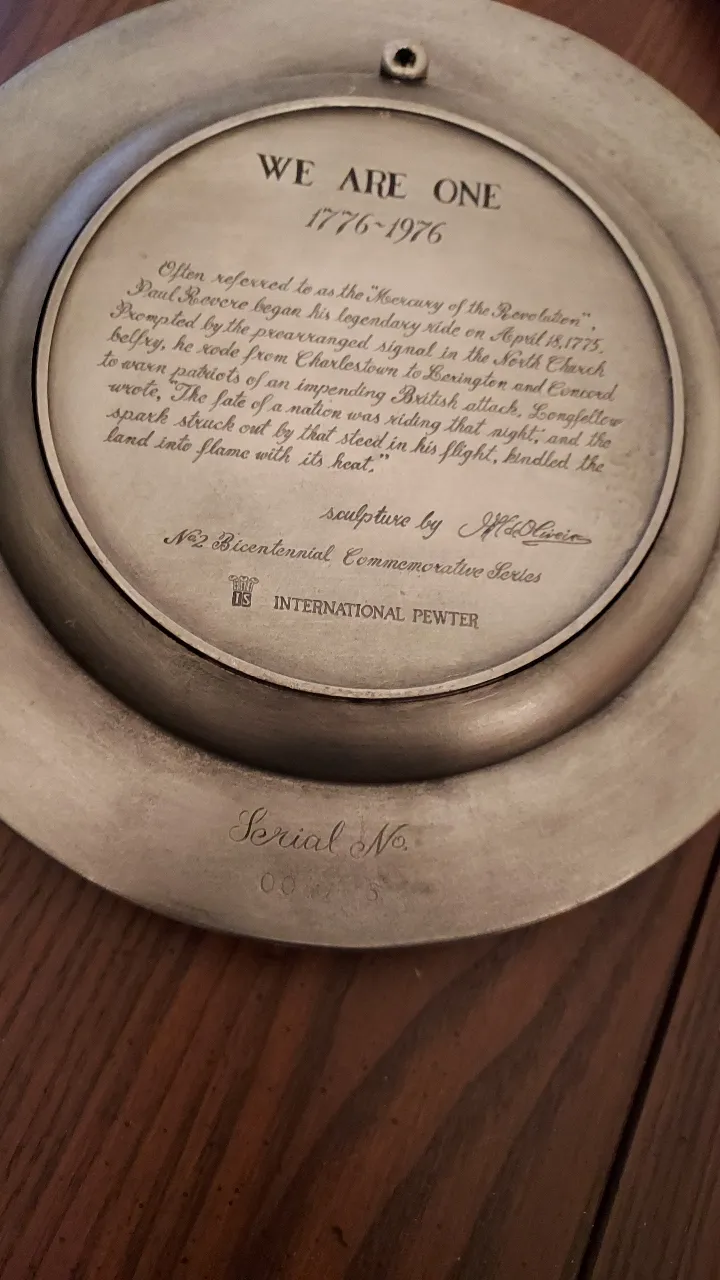 WE ARE ONE
1776~1976
Often referred to as the "Mercury of the Revolution",
Paul Revere began his legendary ride on April 18, 1775.
Prompted by the prearranged signal in the North Church
belfry, he rode from Charlestown to Lexington and Concord
to warn patriots of an impending British attack. Longfellow
wrote, "The fate of a nation was riding that night; and the
spark struck out by that steed in his flight, kindled the
land into flame with its heat."
sculpture by
No2 Bicentennial Commemorative Series
IS INTERNATIONAL PEWTER
Serial No.